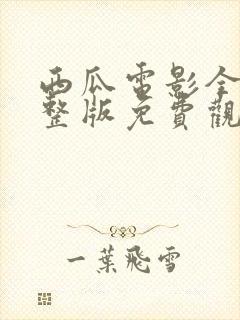 西瓜電影全
整版免費觀
一葉飛雪